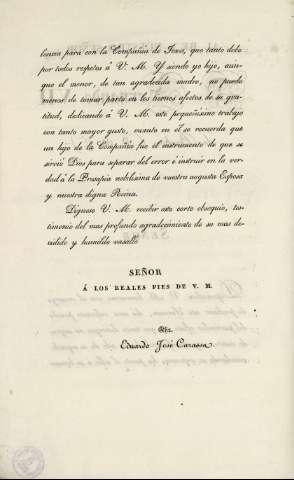 lencia para con la Compañia de Jesus, que tanto debe
por todos respetos á V. M. Y siendo yo hijo, aun-
que el menor, de tan agradecida madre, no puedo
menos de tomar parte en los tiernos afectos de su gra-
titud, dedicando á V. M. este pequeñisimo trabajo
con tanto mayor gusto, cuanto en él se recuerda que
un hijo de la Compañia fue el instrumento de que se
sirvió Dios para separar del error é instruir en la ver-
dad á la Prosapia nobilisima de vuestra augusta Esposa
y nuestra digna Reina.
Dígnese V. M. recibir este corto obsequio, tes-
timonio del mas profundo agradecimiento de su mas de-
cidido y humilde vasallo
SEÑOR
Á LOS REALES PIES DE V. M.
Eduardo José Carassa